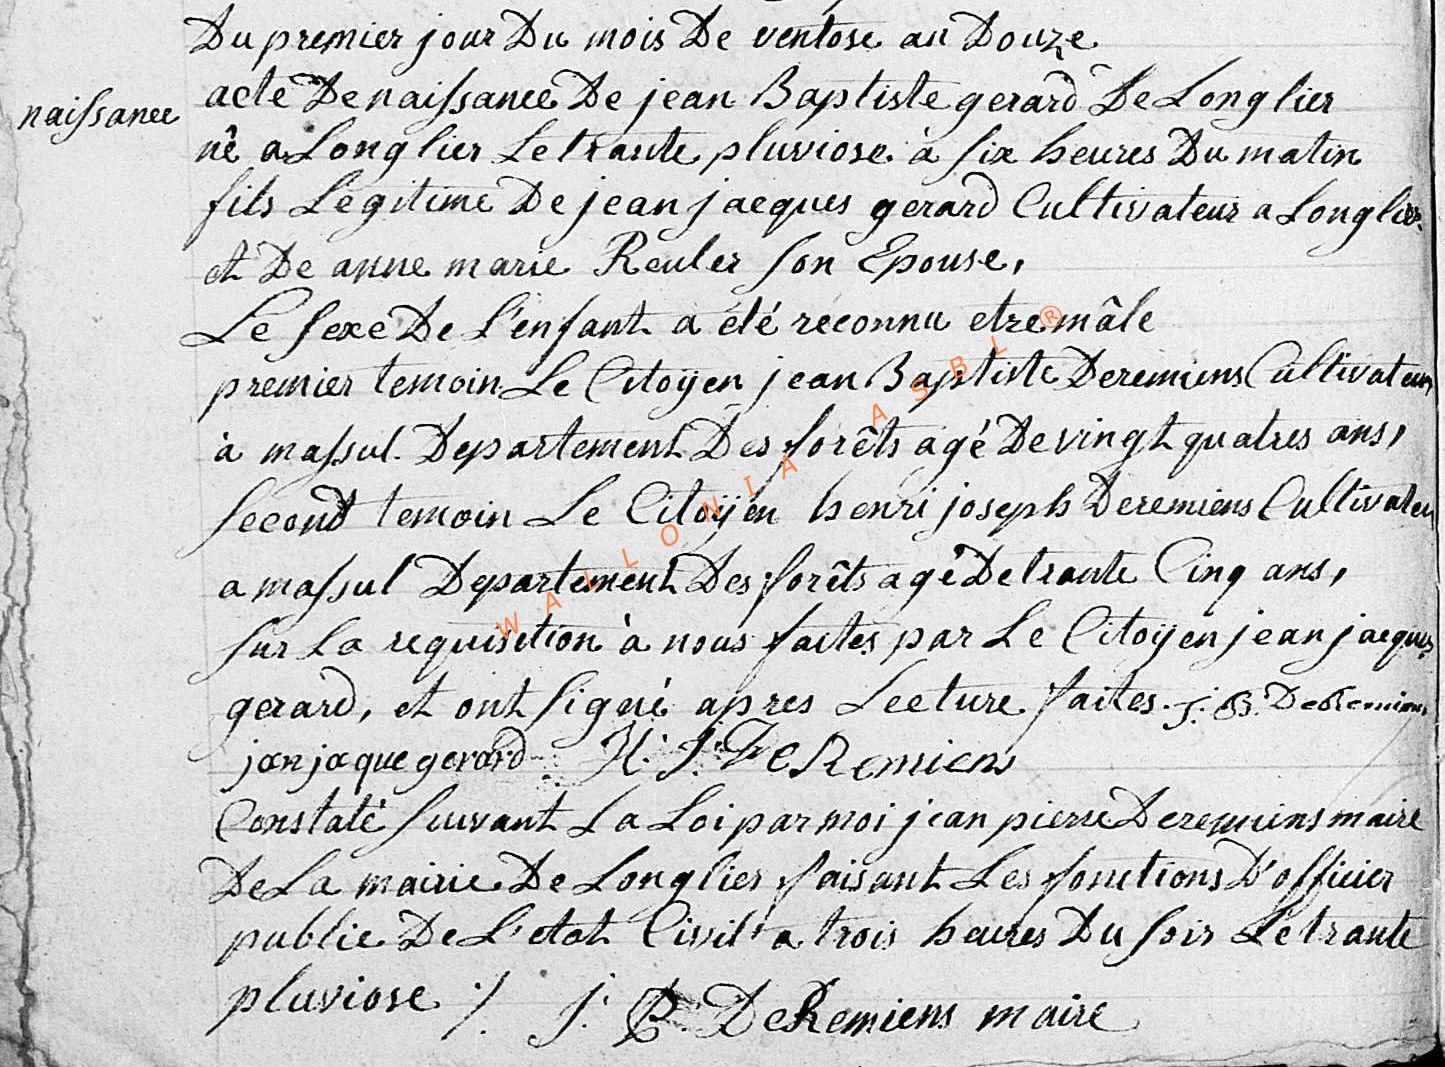 Du premier jour Du mois De ventose an Douze
naissance
acte De naissance De jean Baptiste gerard De Longlier
né a Longlier Le trante pluviose à six heures Du matin
fils Legitime De jean jacques gerard Cultivateur a Longlier
et De anne marie Reuler son Epouse,
Le sexe De L'enfant a été reconnu etre mâle
premier temoin Le Citoÿen jean Baptiste Deremiens Cultivateur
à massul Departement Des forêts agé De vingt quatres ans,
second temoin Le Citoÿen henri joseph Deremiens Cultivateur
a massul Departement Des forêts agé De trante Cinq ans,
sur La requisition à nous faites par Le Citoÿen jean jacques
gerard, et ont signé apres Lecture faites. J. B. DeRemiens
jan jaque gerard H. J. DeRemiens
Constaté suivant La Loi par moi jean pierre Deremiens maire
De La mairie De Longlier faisant Les fonctions D'officier
public De L'etat Civil a trois heures Du soir Le trante
pluviose ./. J. P. DeRemiens maire
WALLONIA ASBL ®